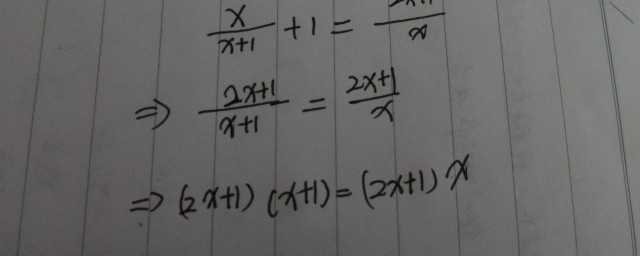 x/(x+1) + 1 = (2x+1)/x
⇒ (2x+1)/(x+1) = (2x+1)/x
⇒ (2x+1) (x+1) = (2x+1) x